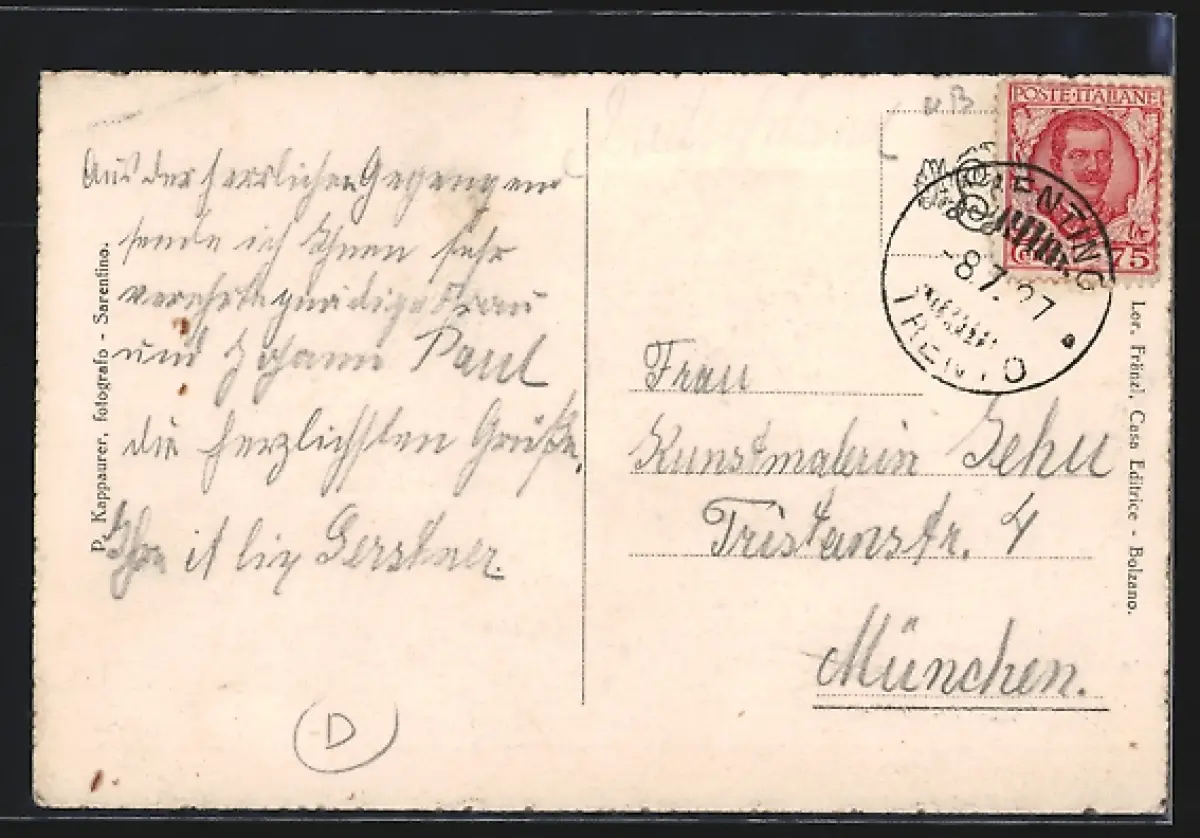 Aus der herrlichen Gegend
sende ich Ihnen sehr
Frau
und Johann Paul
die herzlichsten Grüße.
Gerstner.
P. Kappaurer, fotografo - Sarentino.
D
POSTE·ITALIANE
75
SARENTINO
-8.7.27
TRENTO
Frau
Kunstmalerin Jehu
Tristanstr. 4
München.
Lor. Fränzl, Casa Editrice - Bolzano.